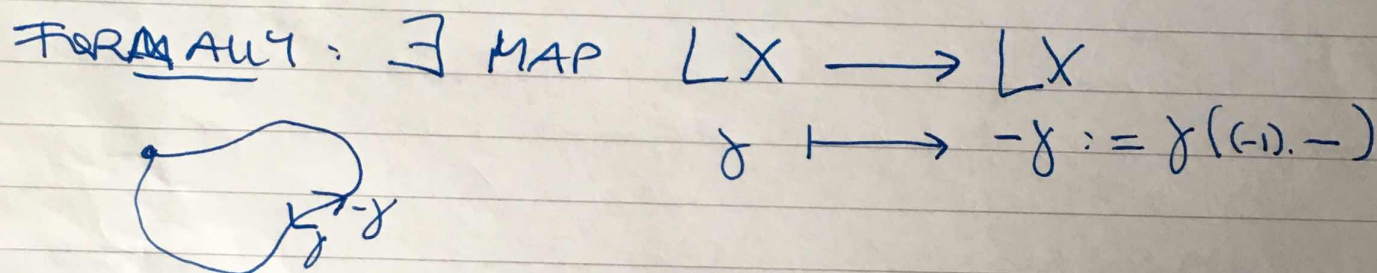 FORMALLY: ∃ MAP LX ⟶ LX
γ ⟼ -γ := γ((-1).-)
-γ
γ